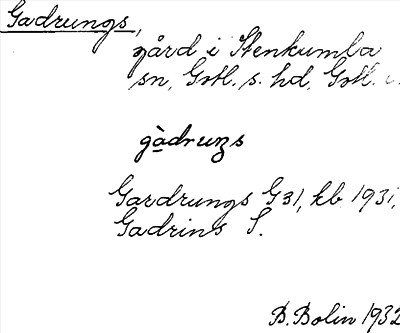 Gadrungs,
gård i Stenkumla
sn, Gotl. s. hd, Gotl. l.
gàdruŋs
Gardrungs G31, kb 1931,
Gadrins S.
B. Bolin 1932